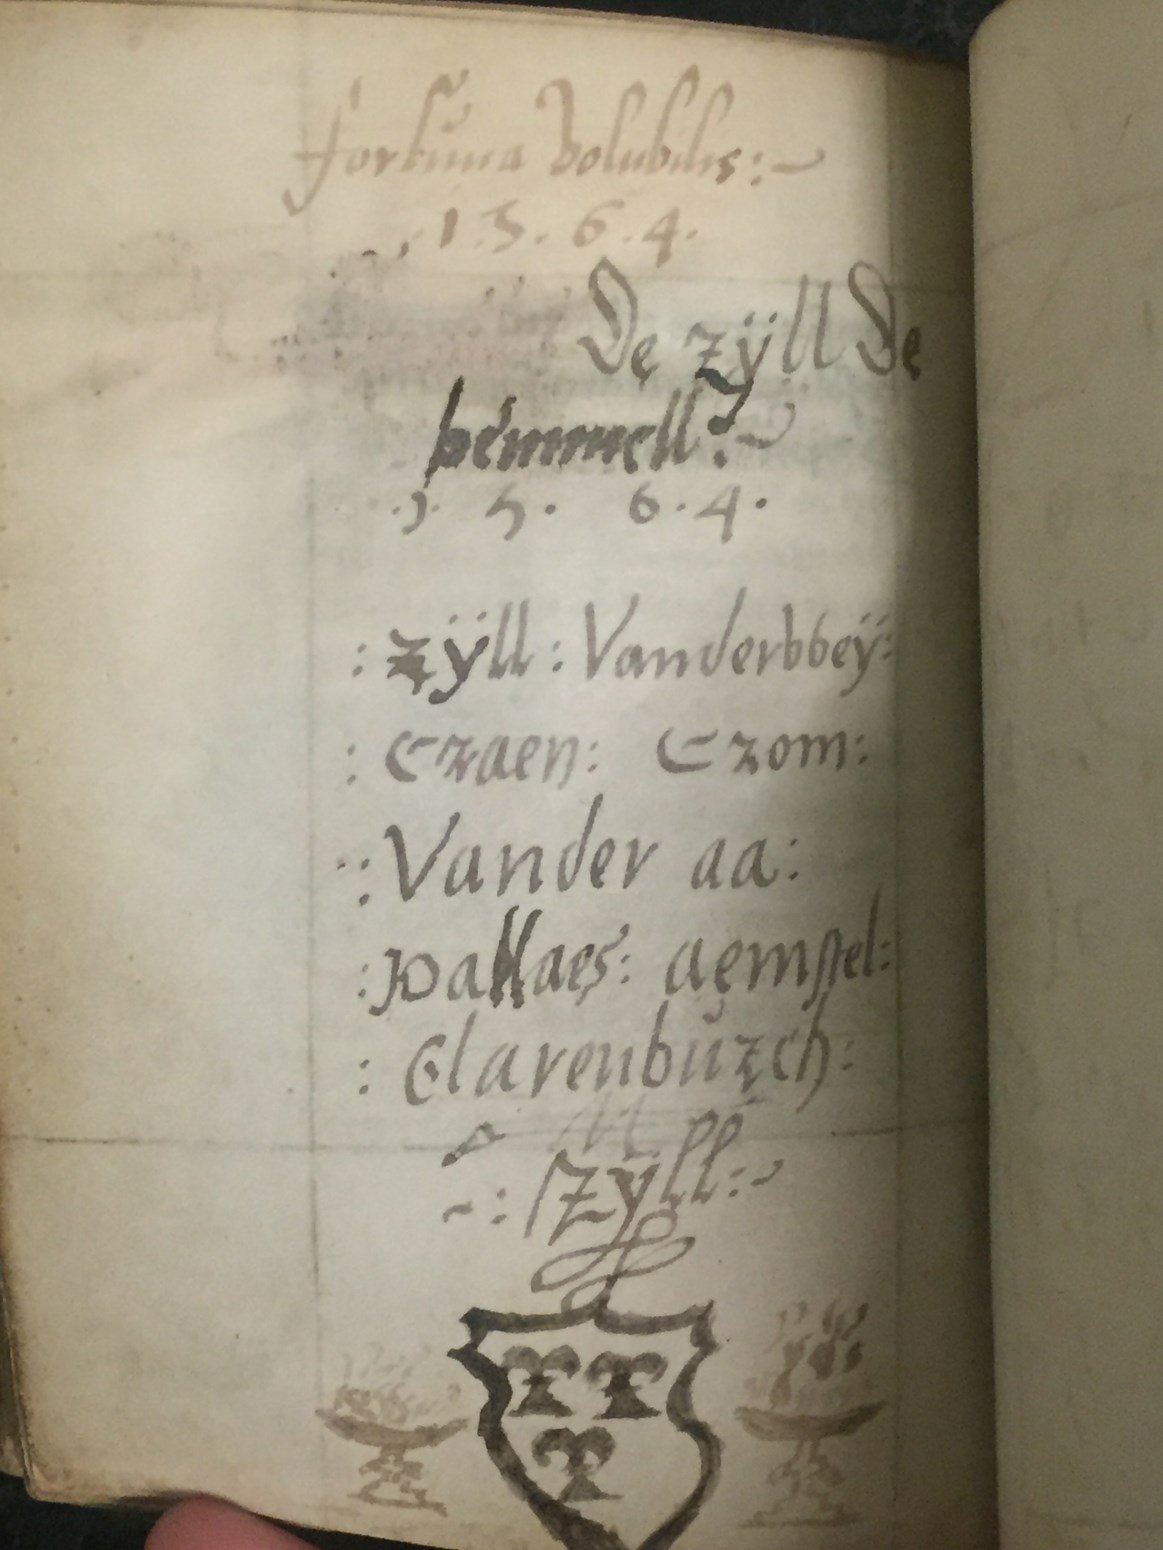 fortuna Volubilis:~
.1.5.6.4.
De zÿll De
hemmell:~
.1.5. 6.4.
: zÿll : Vanderbbeÿ:
: Czaen: Czom:
: Vander aa:
: pallaes: aemstel:
: Clarenbůzch:
~: zÿll:~